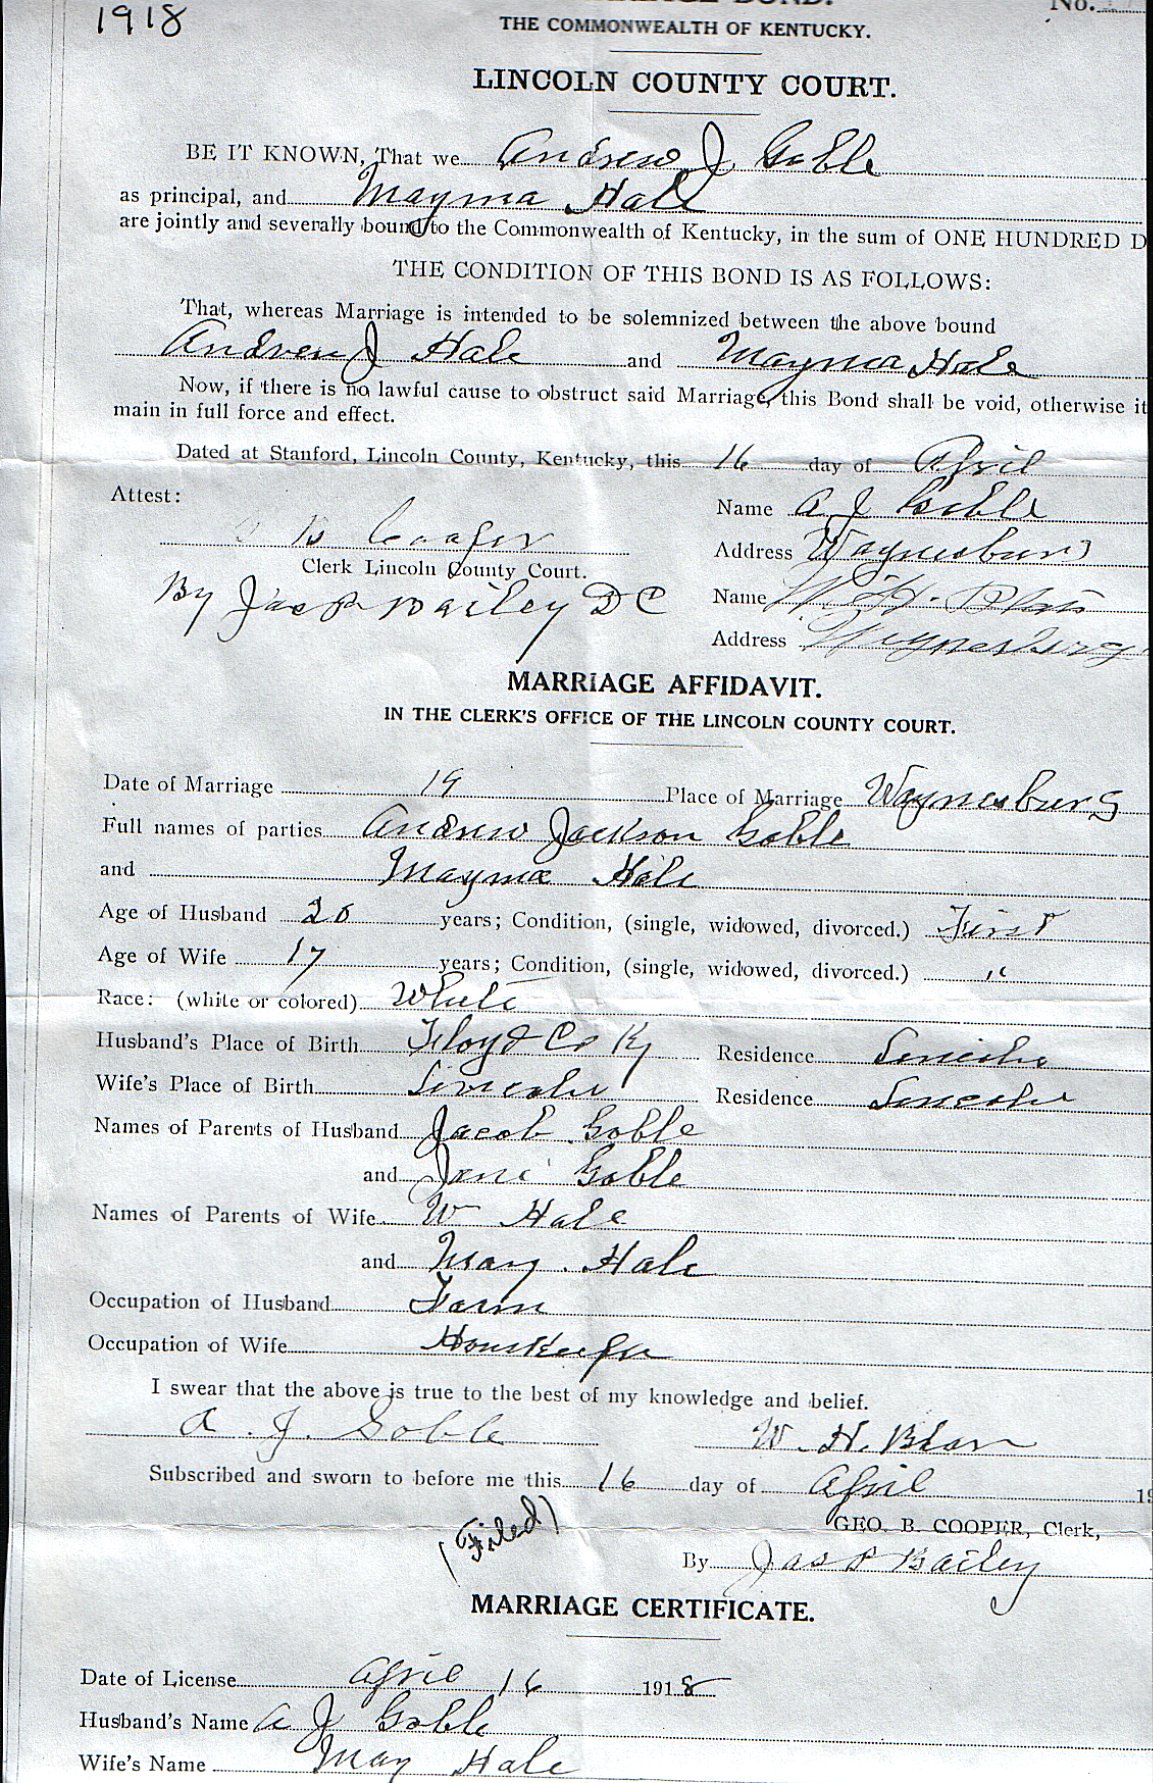 1918
BOND.
No.
THE COMMONWEALTH OF KENTUCKY.
LINCOLN COUNTY COURT.
BE IT KNOWN, That we Andrew J Goble
as principal, and Mayma Hale
are jointly and severally bound to the Commonwealth of Kentucky, in the sum of ONE HUNDRED D
THE CONDITION OF THIS BOND IS AS FOLLOWS:
That, whereas Marriage is intended to be solemnized between the above bound
Andrew J Hale and Mayma Hale
Now, if there is no lawful cause to obstruct said Marriage, this Bond shall be void, otherwise it
main in full force and effect.
Dated at Stanford, Lincoln County, Kentucky, this 16 day of April
Attest:
Name A J Goble
B Cooper
Address Waynesburg
Clerk Lincoln County Court.
By Jas P Bailey D C
Name W. H.
Address Waynesburg
MARRIAGE AFFIDAVIT.
IN THE CLERK'S OFFICE OF THE LINCOLN COUNTY COURT.
Date of Marriage 19 Place of Marriage Waynesburg
Full names of parties Andrew Jackson Goble
and Mayma Hale
Age of Husband years; Condition, (single, widowed, divorced.) First
Age of Wife 17 years; Condition, (single, widowed, divorced.) "
Race: (white or colored) White
Husband's Place of Birth Floyd Co Ky Residence Lincoln
Wife's Place of Birth Lincoln Residence Lincoln
Names of Parents of Husband Jacob Goble
and Jane Goble
Names of Parents of Wife W Hale
and May Hale
Occupation of Husband Farm
Occupation of Wife Housekeeper
I swear that the above is true to the best of my knowledge and belief.
A. J. Goble W. H.
Subscribed and sworn to before me this 16 day of April 19
(Filed)
GEO. B. COOPER, Clerk,
By Jas P Bailey
MARRIAGE CERTIFICATE.
Date of License April 16 1918
Husband's Name A J Goble
Wife's Name May Hale